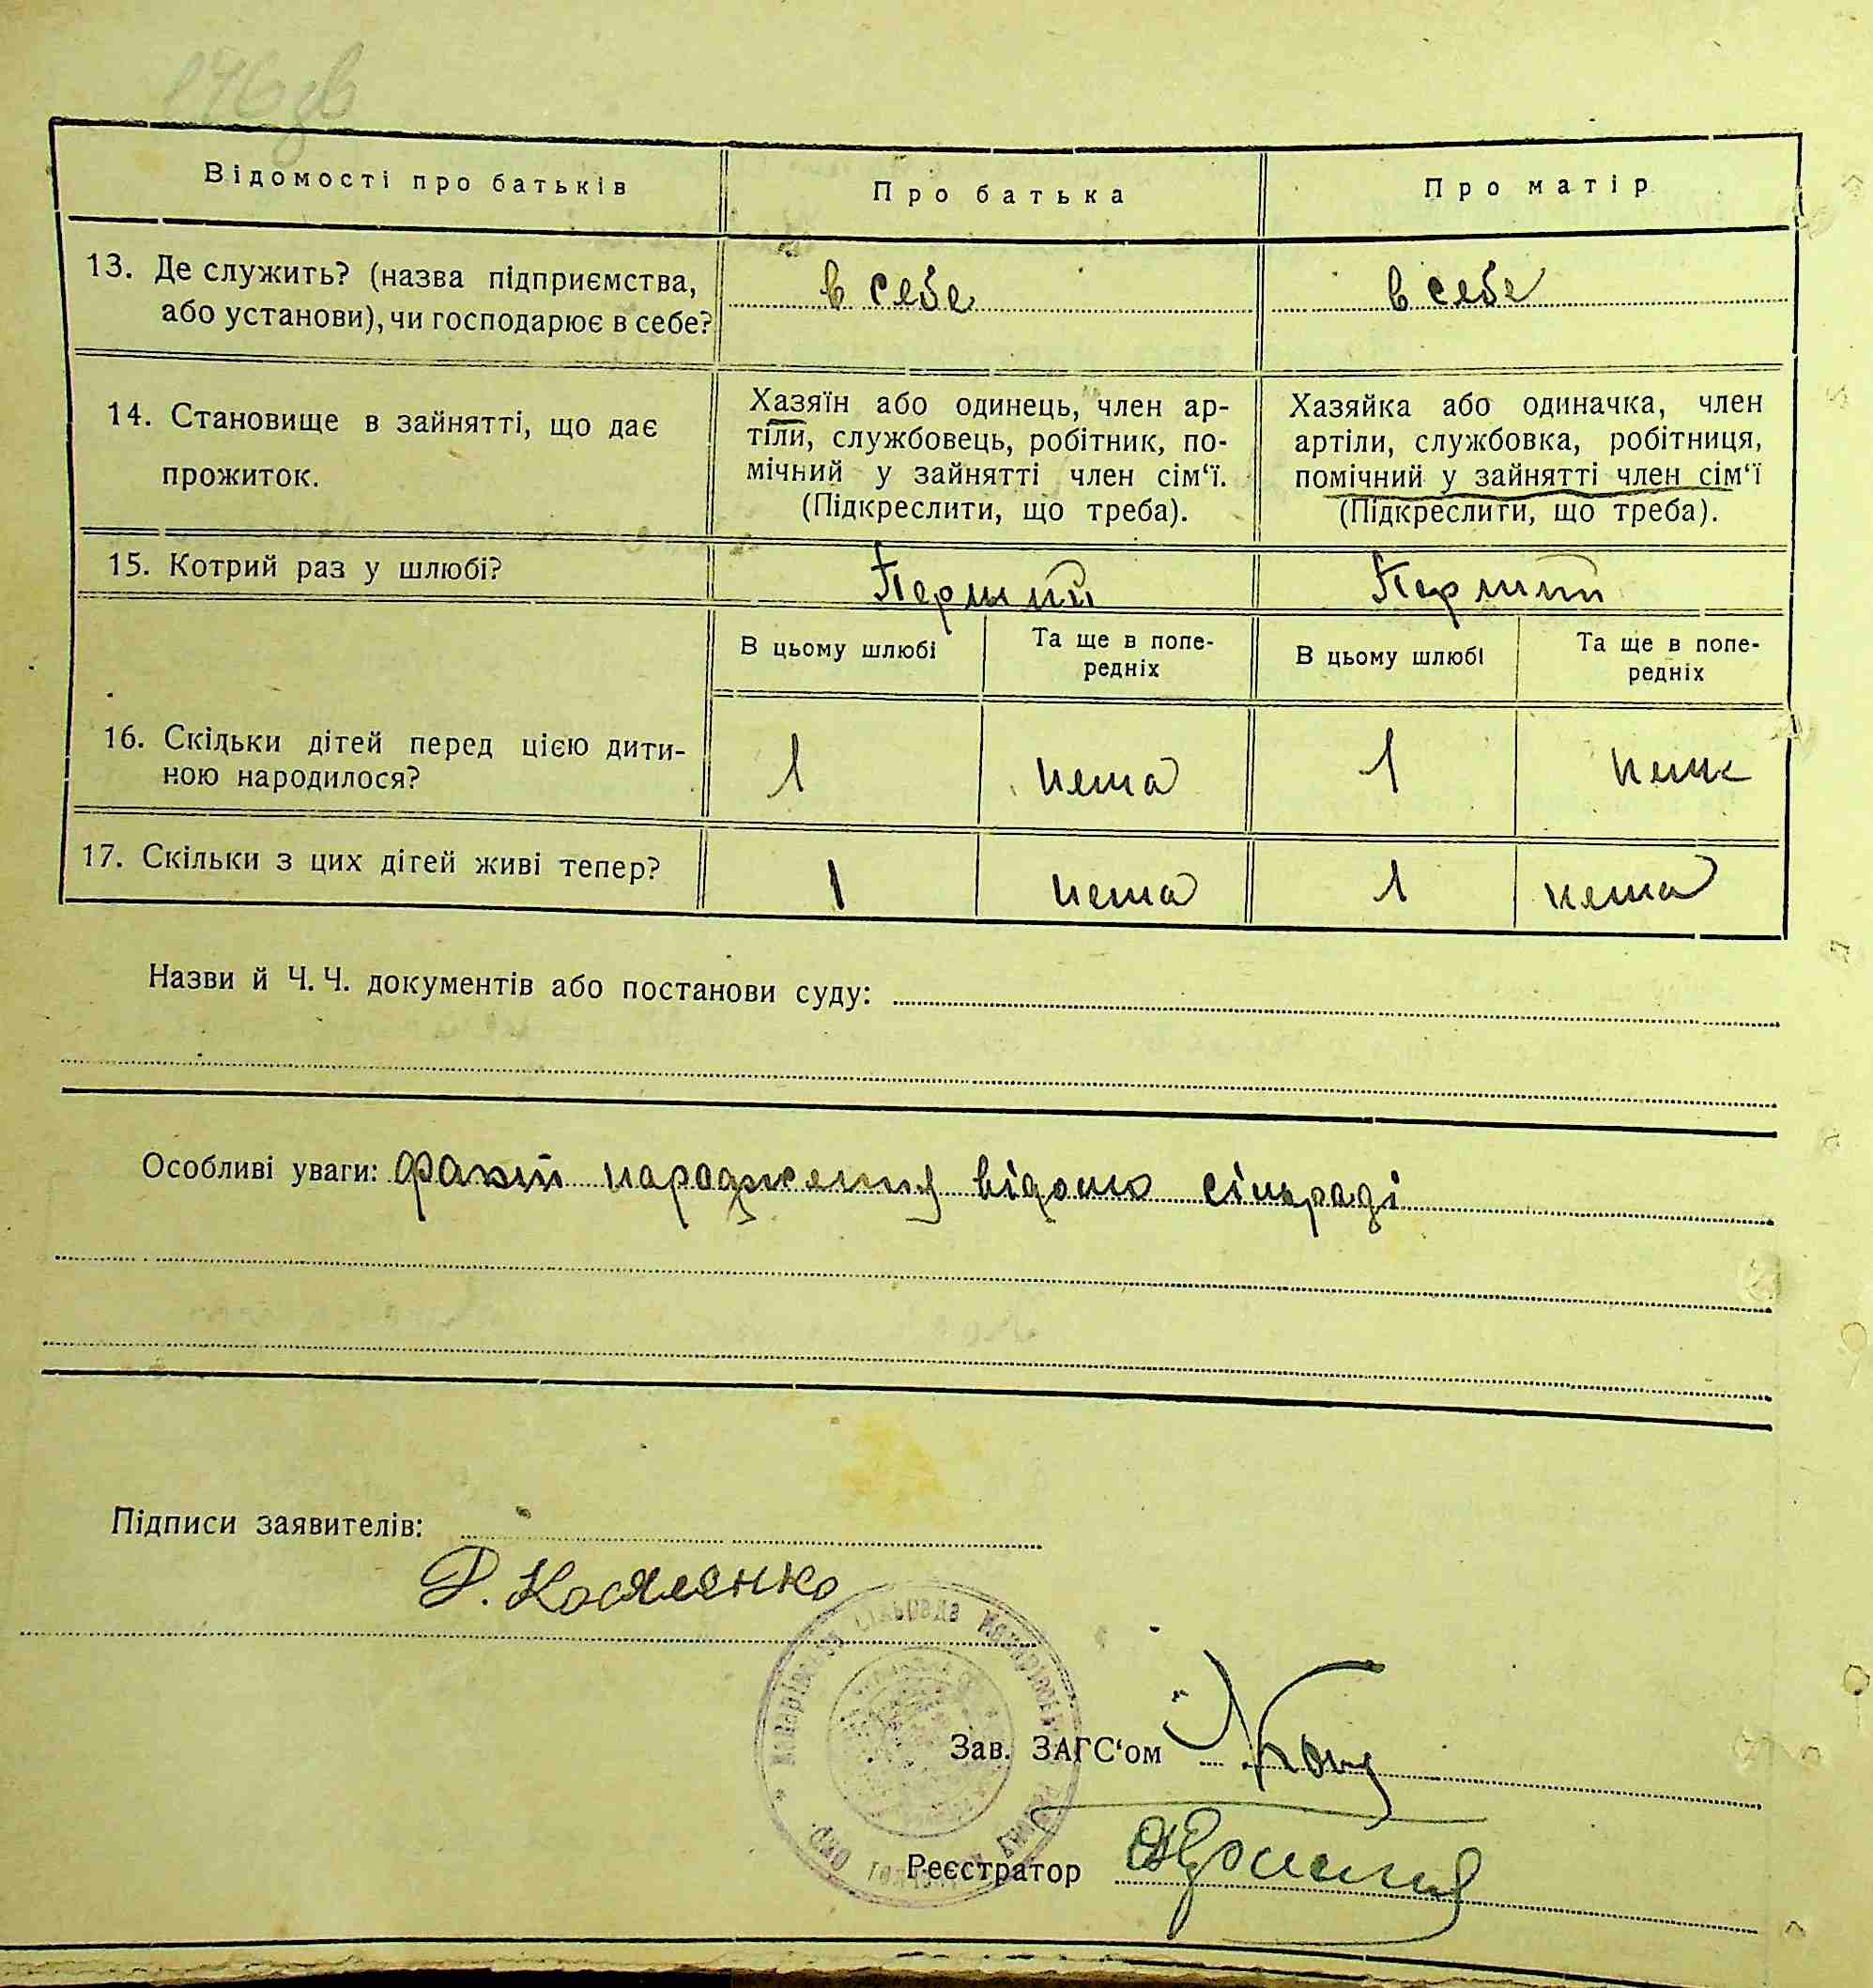 Відомості про батьків
Про батька
Про матір
13. Де служить? (назва підприємства,
або установи), чи господарює в себе?
в себе
в себе
14. Становище в зайнятті, що дає
прожиток.
Хазяїн або одинець, член ар-
тіли, службовець, робітник, по-
мічний у зайнятті член сім‘ї.
(Підкреслити, що треба).
Хазяйка або одиначка, член
артіли, службовка, робітниця,
помічний у зайнятті член сім‘ї
(Підкреслити, що треба).
15. Котрий раз у шлюбі?
Перший
Перший
В цьому шлюбі
Та ще в попе-
редніх
В цьому шлюбі
Та ще в попе-
редніх
16. Скільки дітей перед цією дити-
ною народилося?
1
нема
1
нема
17. Скільки з цих дітей живі тепер?
1
нема
1
нема
Назви й Ч. Ч. документів або постанови суду:
Особливі уваги: Факт народження відомо сільраді
Підписи заявителів:
Зав. ЗАГС‘ом
Реєстратор